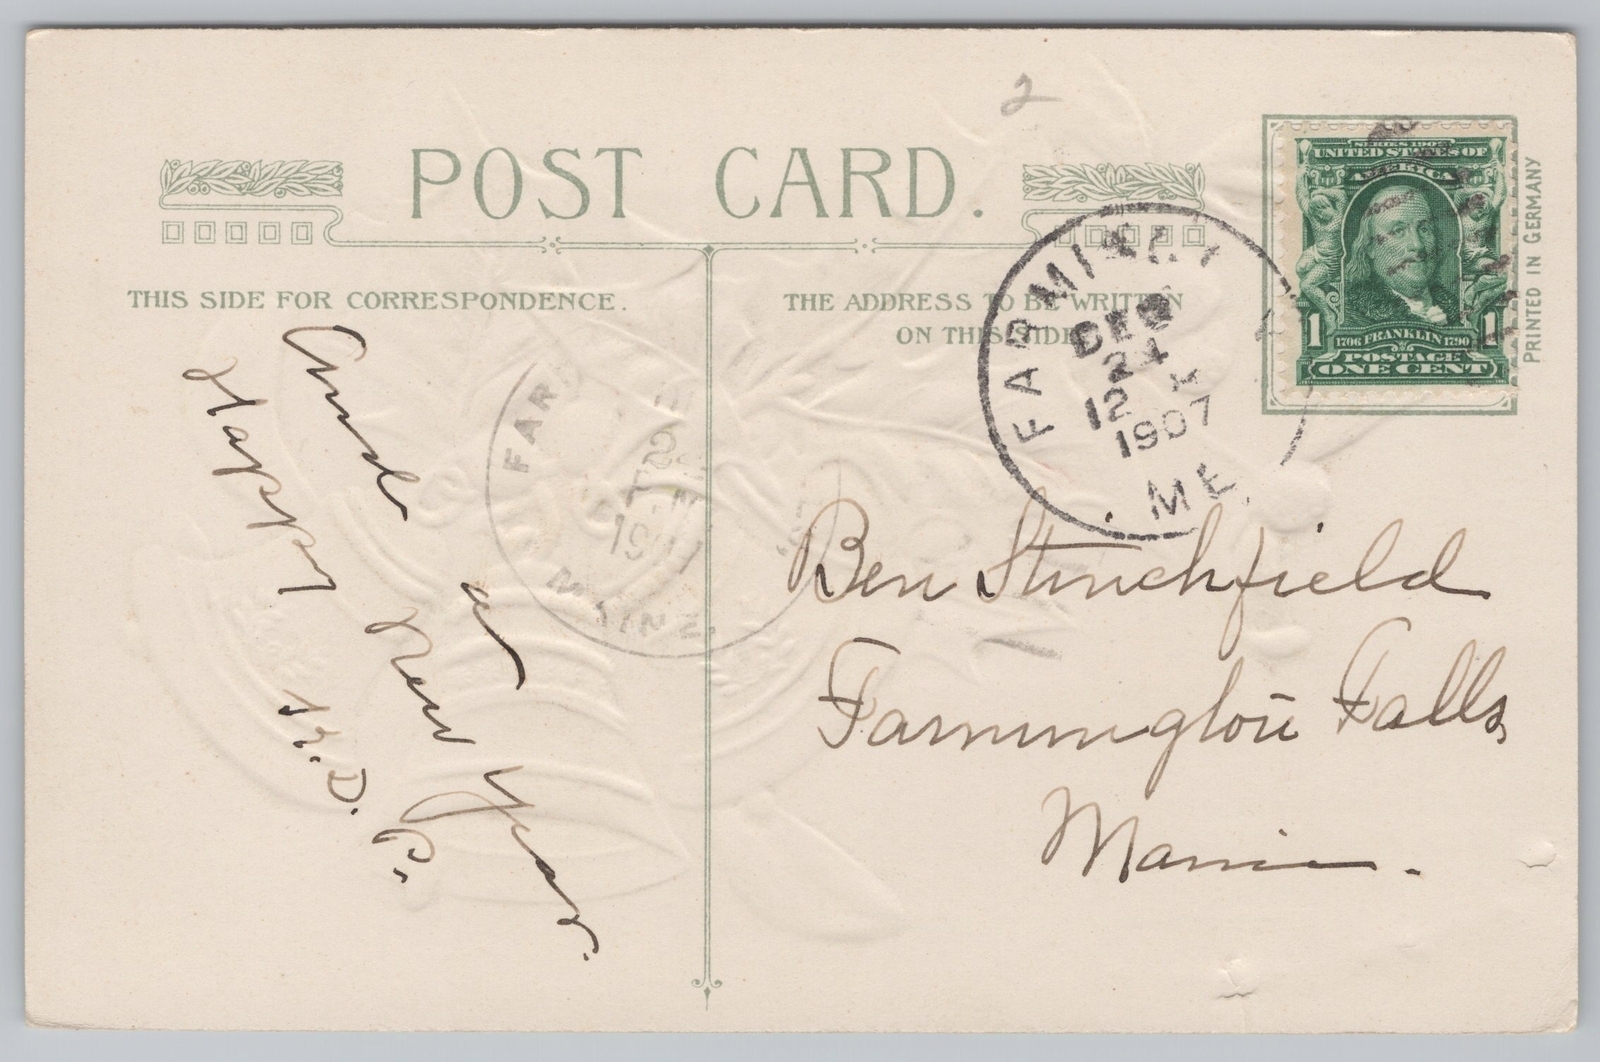 2
POST CARD.
THIS SIDE FOR CORRESPONDENCE.
THE ADDRESS TO BE WRITTEN
ON THIS SIDE
SERIES 1902
UNITED STATES OF
AMERICA
1 1706 FRANKLIN 1790 1
POSTAGE
ONE CENT
PRINTED IN GERMANY
FARMINGT
DEC
24
12 M
1907
ME.
FARM
1907
MAINE.
And a
Happy New Year
H. D. P.
Ben Stinchfield
Farmington Falls
Maine.